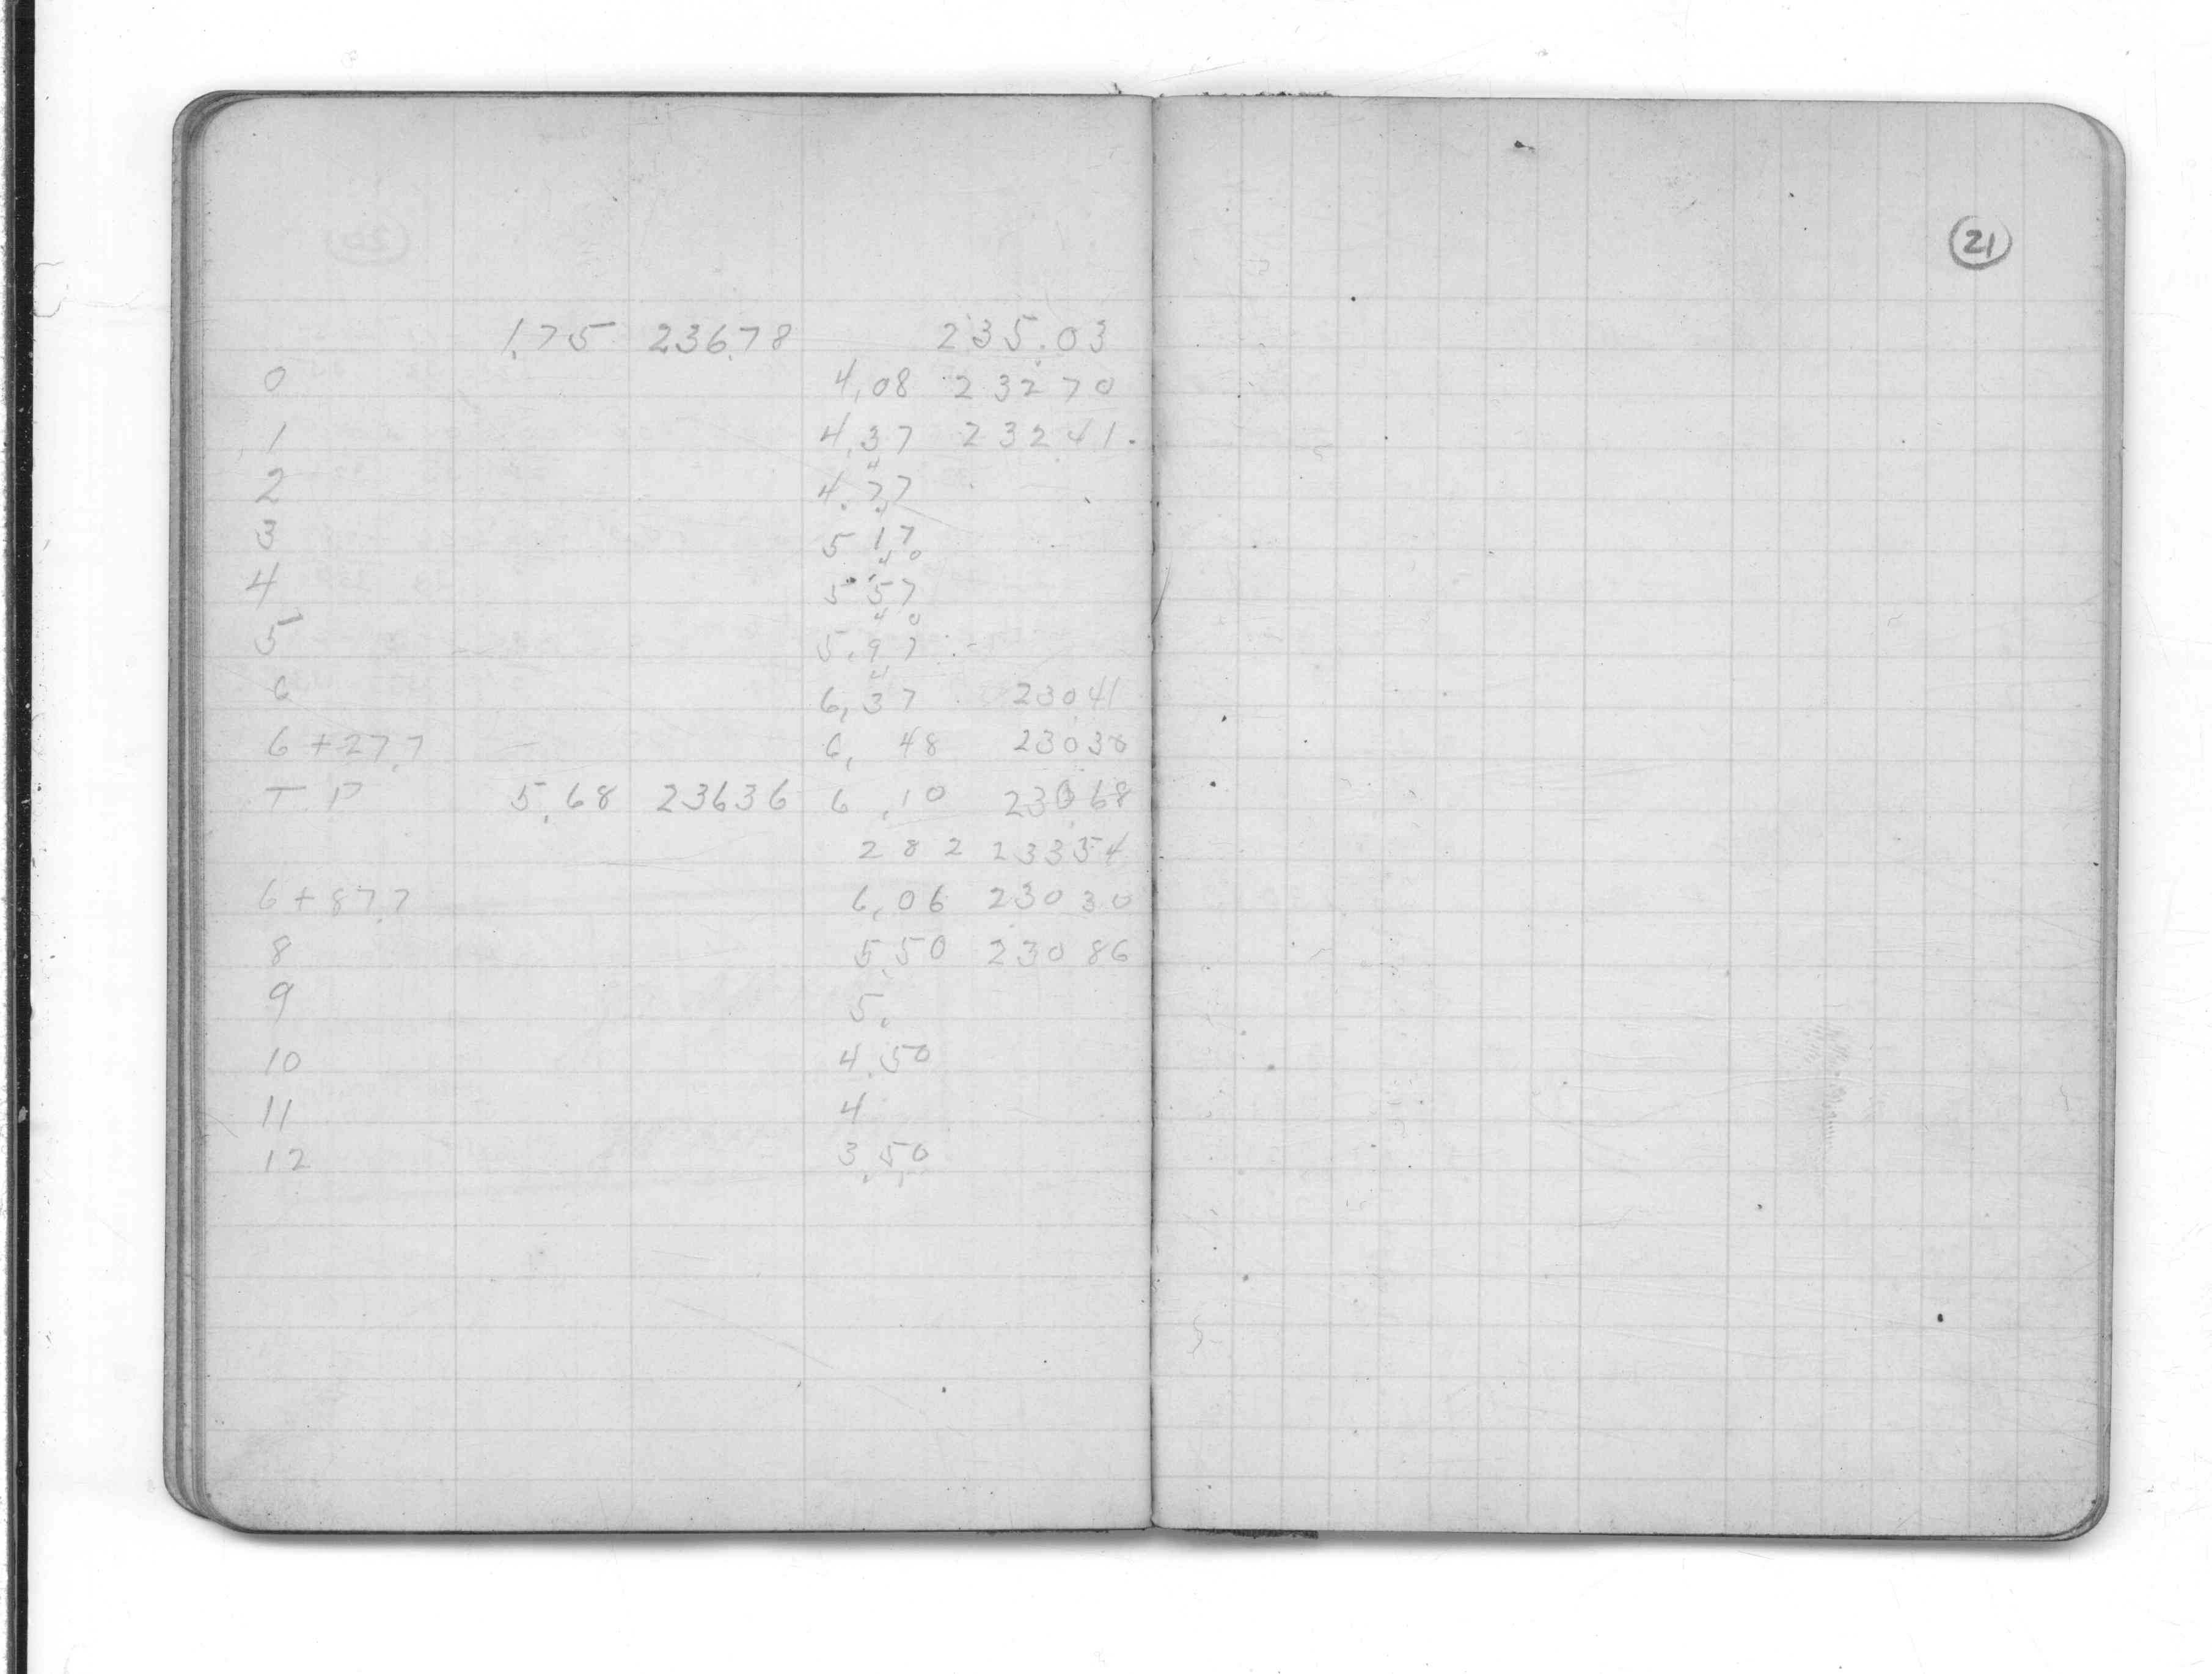 21
1.75 236.78 235.03
0 4.08 232 70
1 4.37 232 41.
4
2 4.77
3 5 17
40
4 5 57
40
5 5.97
4
6 6,37 230.41
6 + 27.7 6, 48 23030
T.P 5.68 23636 6.10 230.68
2 8 2 23354
6 + 87.7 6.06 230 30
8 5.50 230 86
9 5.
10 4.50
11 4
12 3.50